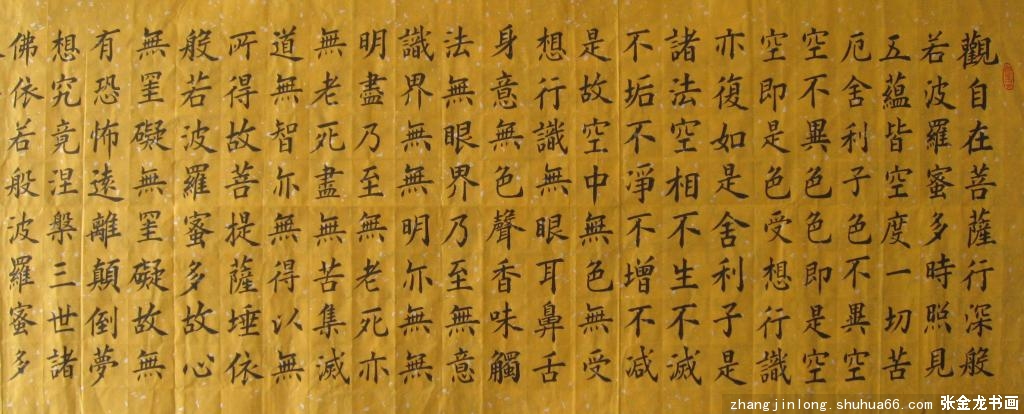 觀自在菩薩行深般
若波羅蜜多時照見
五蘊皆空度一切苦
厄舍利子色不異空
空不異色色即是空
空即是色受想行識
亦復如是舍利子是
諸法空相不生不滅
不垢不淨不增不减
是故空中無色無受
想行識無眼耳鼻舌
身意無色聲香味觸
法無眼界乃至無意
識界無無明亦無無
明盡乃至無老死亦
無老死盡無苦集滅
道無智亦無得以無
所得故菩提薩埵依
般若波羅蜜多故心
無罣礙無罣礙故無
有恐怖遠離顛倒夢
想究竟涅槃三世諸
佛依若般波羅蜜多
zhangjinlong.shuhua66.com 张金龙书画